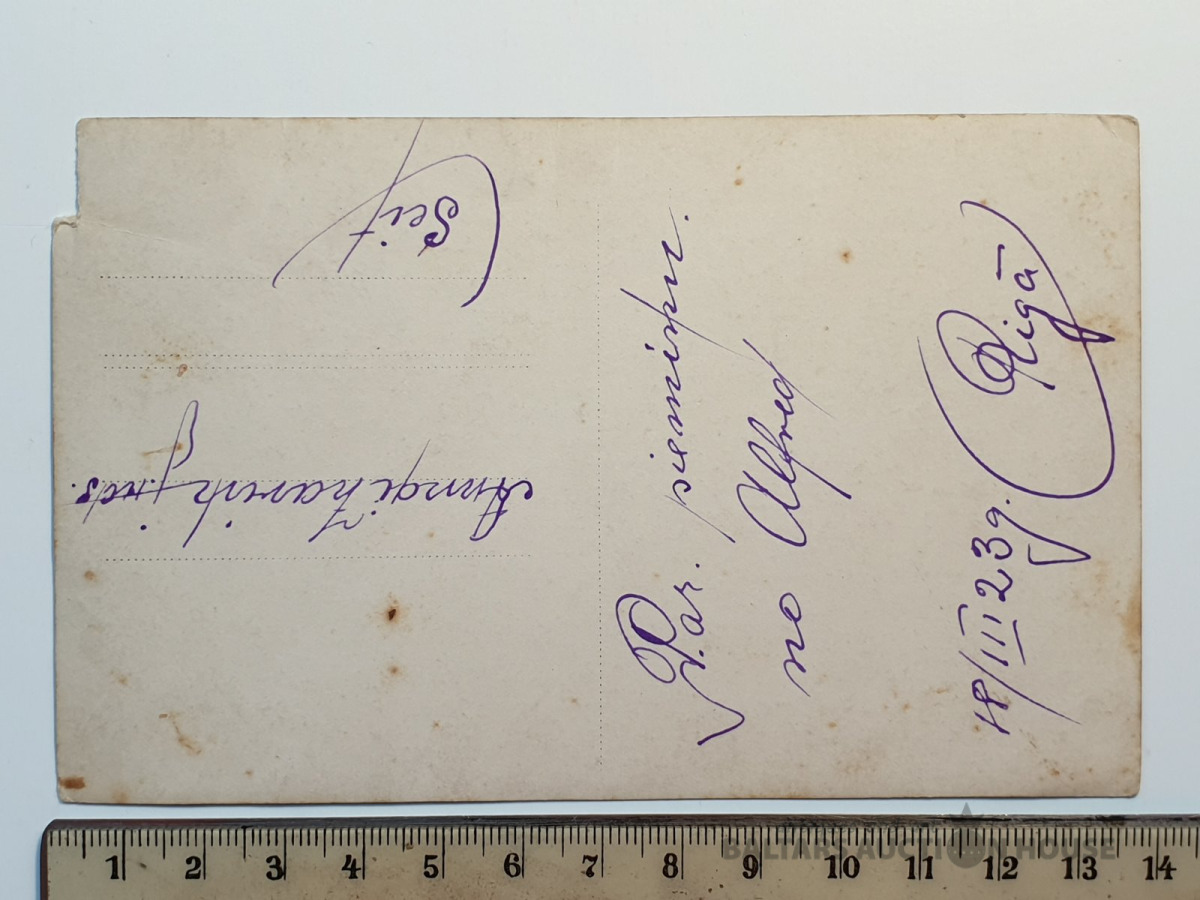 Par. piemiņu.
no Alfred
18/III 23g. Rīgā
Šeit
Annai
1 2 3 4 5 6 7 8 9 10 11 12 13 14
BALTARS AUCTION HOUSE